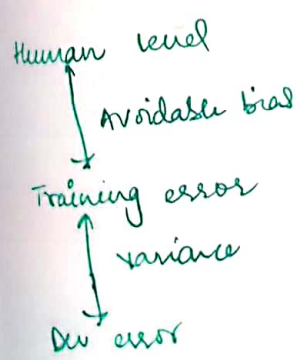 Human level
Avoidable bias
Training error
variance
Dev error